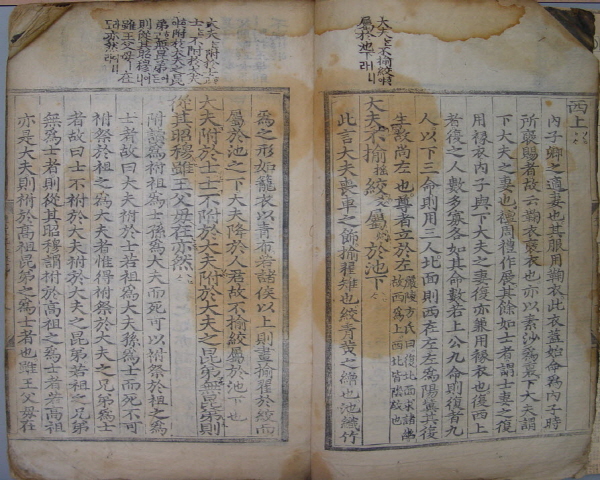 大夫 不揄絞
屬於池下
西上
內子卿之適妻也其服用鞠衣此衣蓋始命爲內子時
所褒賜者故云鞠衣褒衣也亦以素沙爲裏下大夫謂
下大夫之妻也襢周禮作展其餘如士者謂士妻之復
用褖衣內子與下大夫之妻復亦兼用褖衣也復西上
者復之人數多寡各如其命數若上公九命則復者九
人以下三命則用三人北面則西在左左爲陽冀其復
生故尚左也尊者立於左
嚴陵方氏曰復北面求諸幽
故西爲上西北皆陰故也
大夫不揄絞屬於池下
此言大夫喪車之飾揄翟雉也絞青黃之繒也池織竹
大夫 附於士
士 不附於大夫
附於大夫之昆
弟 無昆弟
則從其昭穆
雖王父母 在
亦然
爲之形如籠衣以青布若諸侯以上則畫揄翟於絞而
屬於池之下大夫降於人君故不揄絞屬於池下也
大夫附於士士不附於大夫附於大夫之昆弟無昆弟則
從其昭穆雖王父母在亦然
附讀爲祔祖爲士孫爲大夫而死可以祔祭於祖之爲
士者故曰大夫祔於士若祖爲大夫孫爲士而死不可
祔祭於祖之爲大夫者惟得祔祭於大夫之兄弟爲士
者故曰士不祔於大夫祔於大夫之昆弟若祖之兄弟
無爲士者則從其昭穆謂祔於高祖之爲士者若高祖
亦是大夫則祔於高祖昆弟之爲士者也雖王父母在